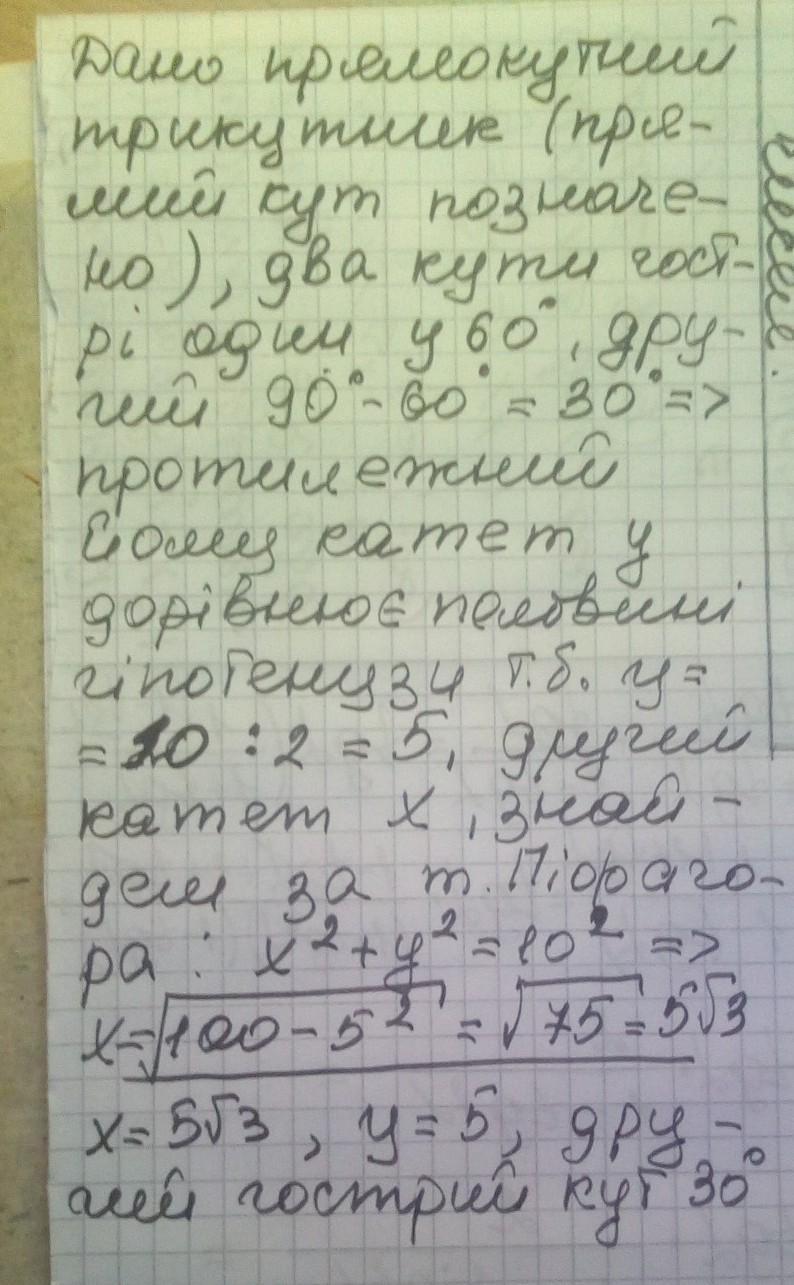 Дано прямокутний
трикутник (пря-
мий кут позначе-
но), два кути гост-
рі один у 60°, дру-
гий 90°-60°=30°=>
протилежний
йому катет у
дорівнює половині
гіпотенузи т.б. y=
=10:2=5, другий
катет x, знай-
дем за т. Піфаго-
ра: x²+y²=10² =>
x=√100-5² = √75=5√3
x=5√3, y=5, дру-
гий гострий кут 30°